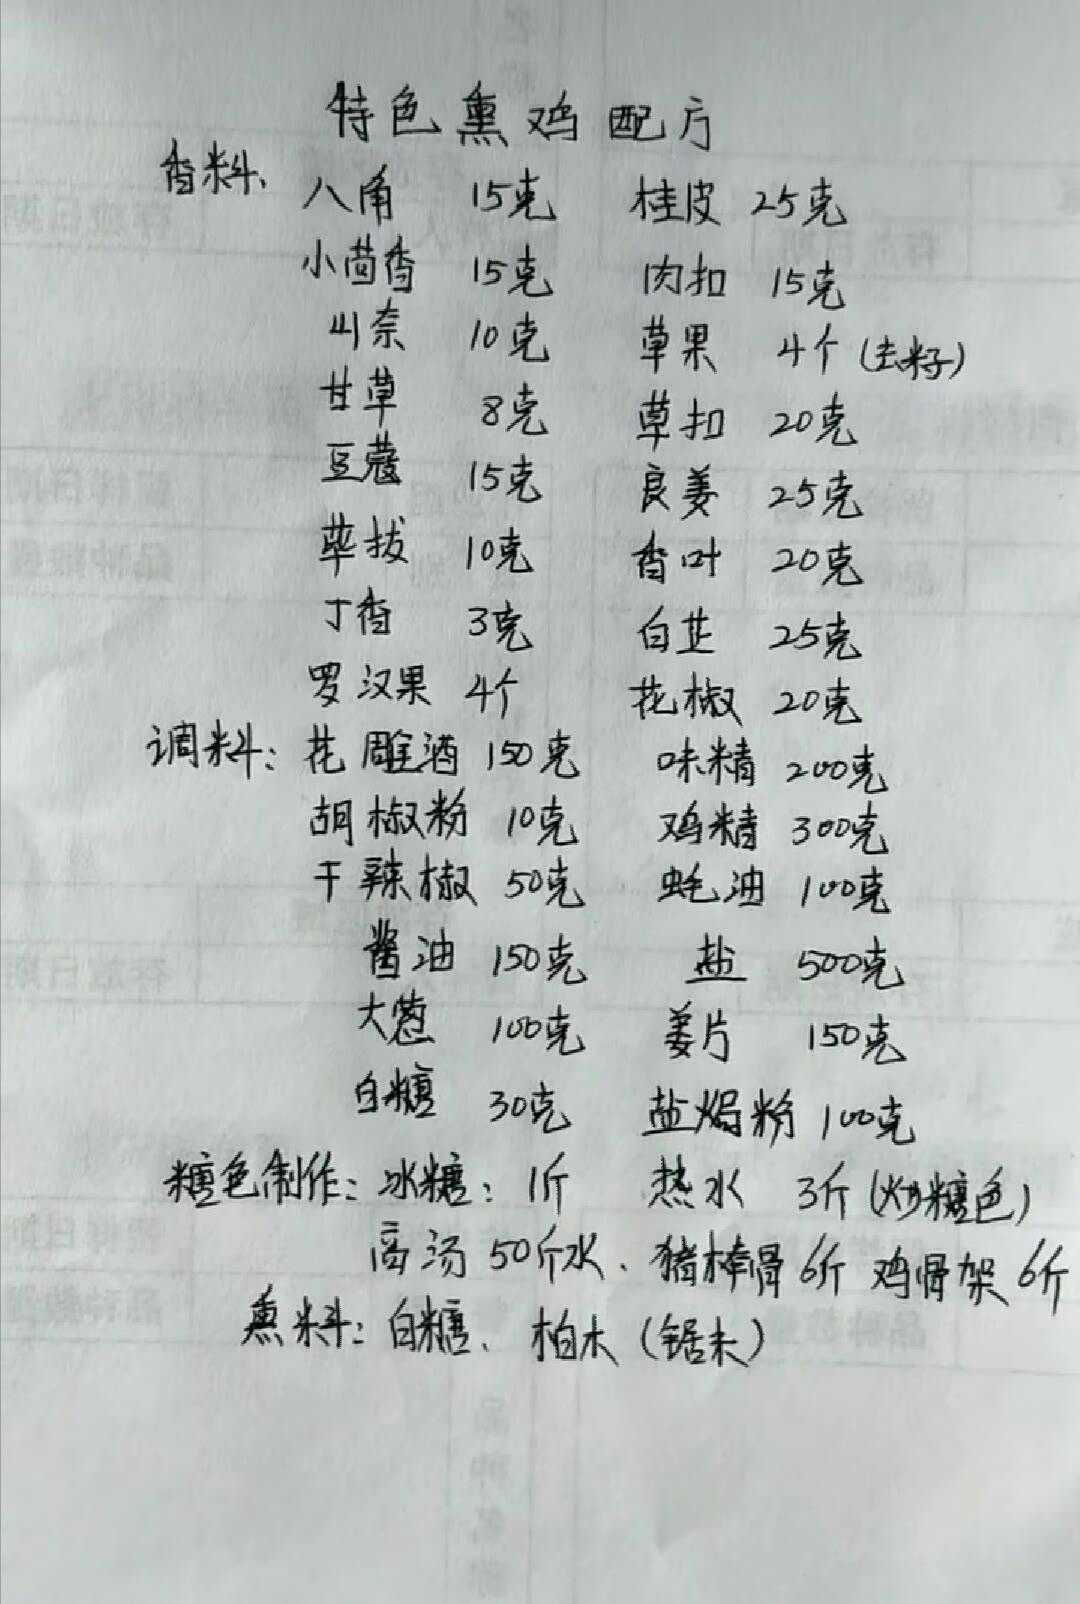 特色熏鸡配方
香料、八角 15克 桂皮 25克
小茴香 15克 肉扣 15克
山奈 10克 草果 4个(去籽)
甘草 8克 草扣 20克
豆蔻 15克 良姜 25克
荜拔 10克 香叶 20克
丁香 3克 白芷 25克
罗汉果 4个 花椒 20克
调料:花雕酒 150克 味精 200克
胡椒粉 10克 鸡精 300克
干辣椒 50克 蚝油 100克
酱油 150克 盐 500克
大葱 100克 姜片 150克
白糖 30克 盐焗粉 100克
糖色制作:冰糖:1斤 热水 3斤(炒糖色)
高汤 50斤水、猪棒骨 6斤 鸡骨架 6斤
熏料:白糖、柏木(锯末)